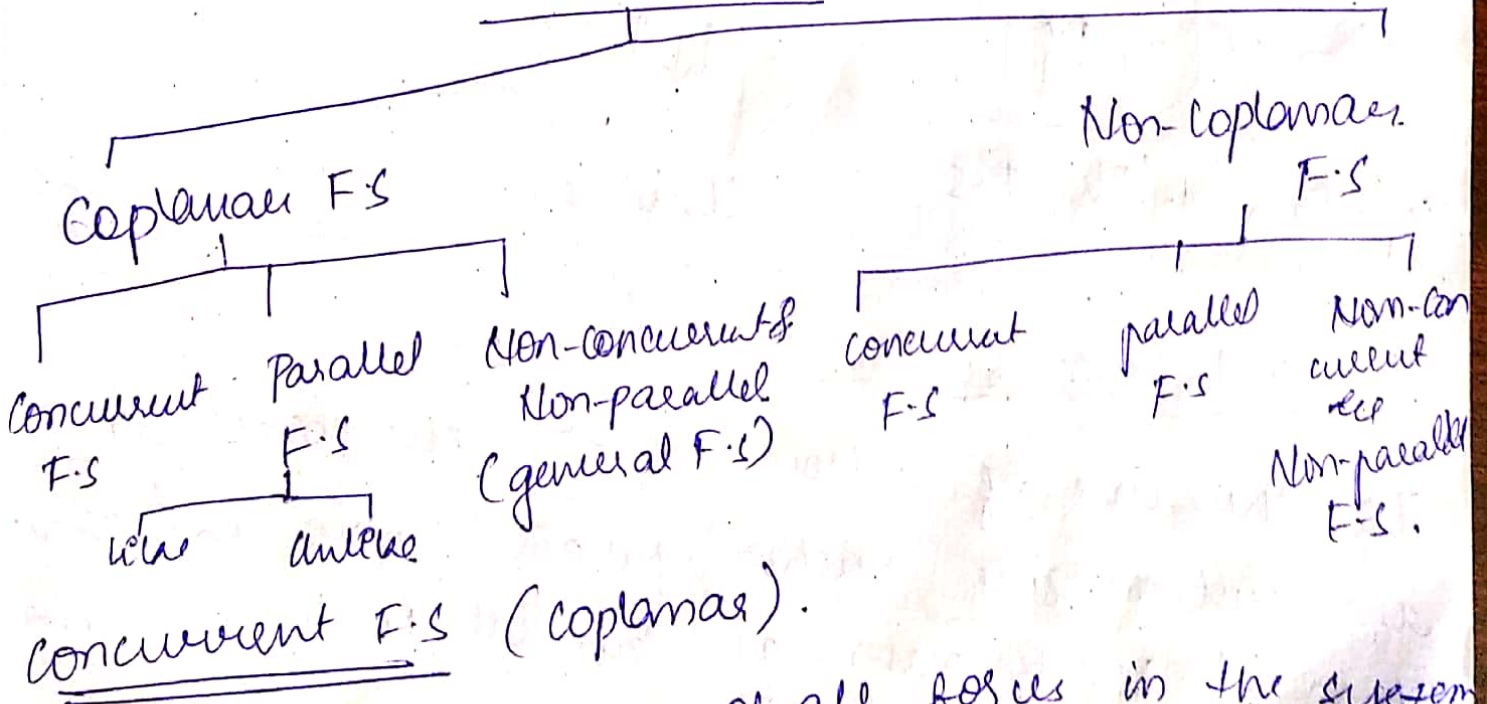 Non-Coplanar
F.S
Coplanar F.S
Concurrent
F.S
Parallel
F.S
like
unlike
Non-concurrent &
Non-parallel
(general F.S)
concurrent
F.S
parallel
F.S
Non-con
current
Non-parallel
F.S.
Concurrent F.S (Coplanar).
all forces in the system